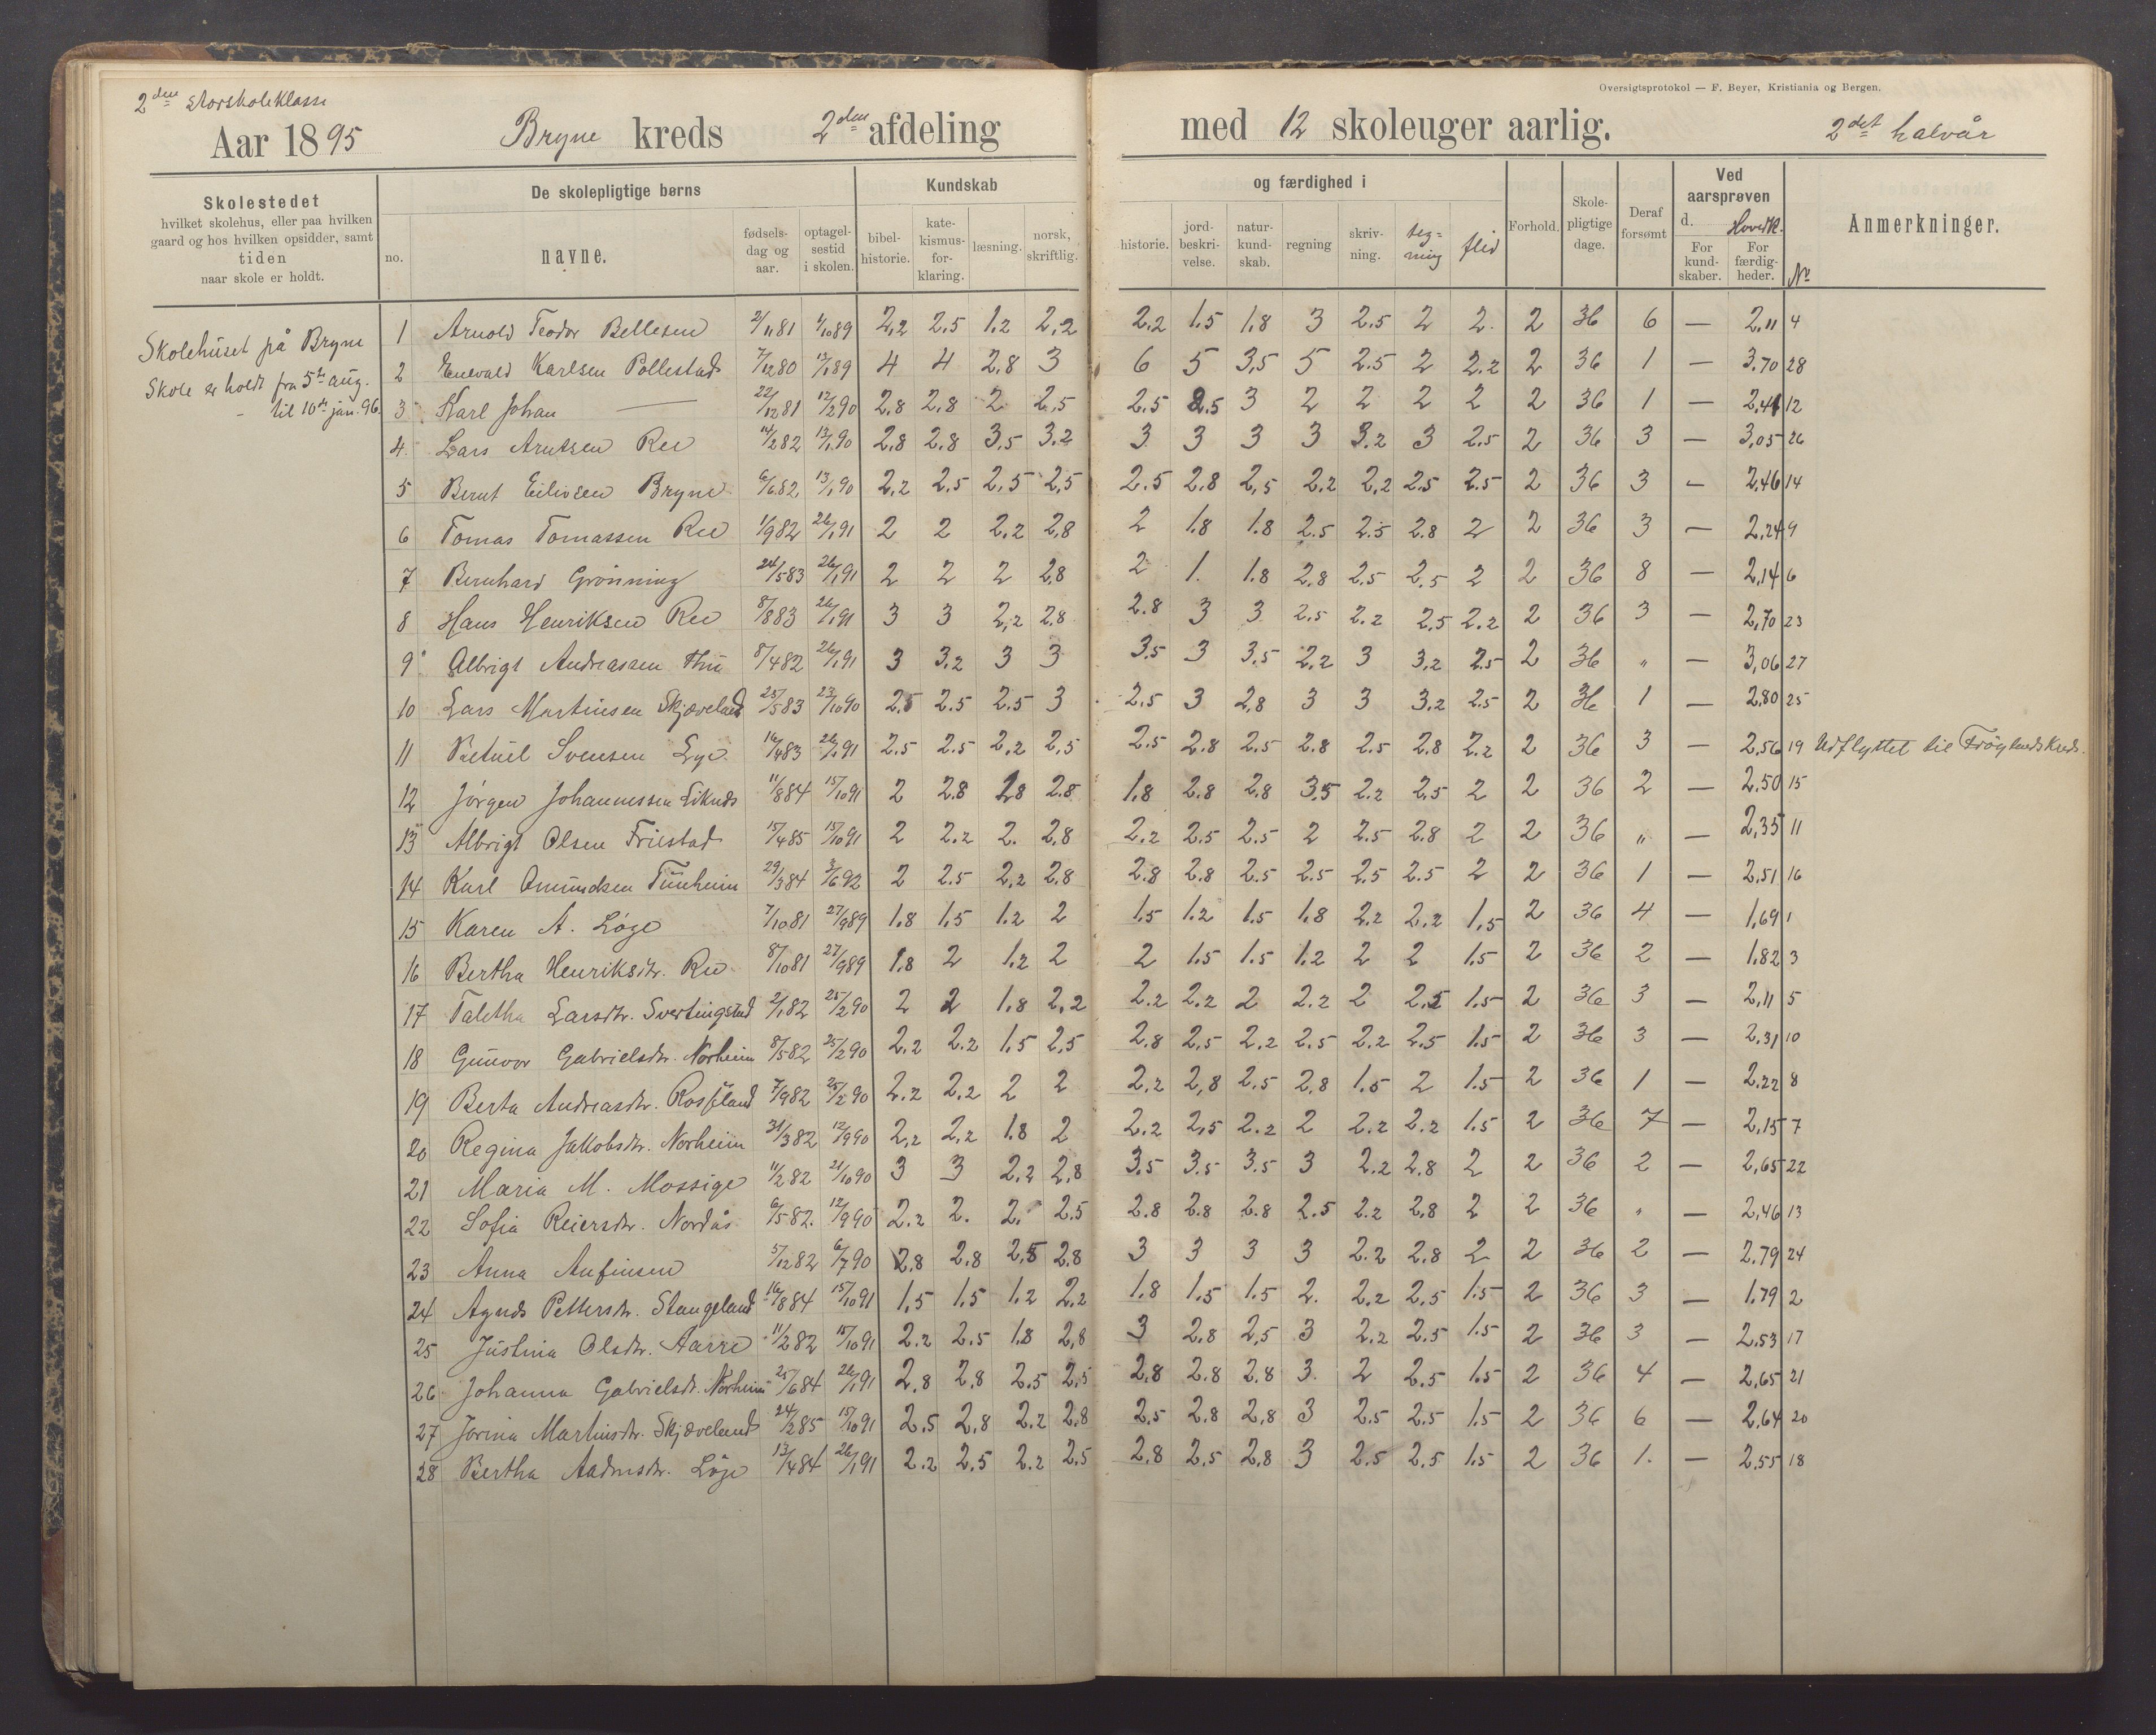 2den Storskoleklasse
Oversigtsprotokol — F. Beyer, Kristiania og Bergen.
Aar 1895 Bryne kreds 2den afdeling med 12 skoleuger aarlig. 2det halvår
Skolestedet
hvilket skolehus, eller paa hvilken
gaard og hos hvilken opsidder, samt
tiden
naar skole er holdt.
De skolepligtige børns
no. navne. fødsels-dag og aar. optagel-sestid i skolen.
Kundskab og færdighed i
bibel-historie. kate-kismus-for-klaring. læsning. norsk, skriftlig. historie. jord-beskri-velse. natur-kund-skab. regning skriv-ning. teg-ning flid
Forhold. Skole-pligtige dage. Deraf forsømt
Ved aarsprøven
d. Hovedk.
For kund-skaber. For færdig-heder. Nr
Anmerkninger.
Skolehuset på Bryne
Skole er holdt fra 5te aug.
- til 10de jan. 96.
1 Arnold Teodor Bellesen 2/11 81 1/10 89 2,2 2.5 1.2 2,2 2.2 1.5 1.8 3 2.5 2 2. 2 36 6 — 2,11 4
2 Enevald Karlsen Pollestad 7/12 80 13/1 89 4 4 2,8 3 6 5 3,5 5 2.5 2 2.2 2 36 1 — 3.70 28
3 Karl Johan — 22/12 81 12/2 90 2,8 2,8 2 2,5 2.5 2.5 3 2 2 2 2 2 36 1 — 2,41 12
4 Lars Arntsen Ree 14/2 82 13/1 90 2,8 2,8 3,5 3.2 3 3 3 3 3.2 3 2.5 2 36 3 — 3,05 26
5 Bernt Eilivsen Bryne 6/6 82 13/1 90 2,2 2.5 2,5 2,5 2.5 2.8 2,5 2.2 2,2 2.5 2.5 2 36 3 — 2,46 14
6 Tomas Tomassen Ree 1/9 82 26/1 91 2 2 2,2 2,8 2 1.8 1.8 2.5 2.5 2.8 2 2 36 3 — 2,24 9
7 Bernhard Grönning 24/5 83 26/1 91 2 2 2 2,8 2 1. 1.8 2,8 2.5 2,5 2 2 36 8 — 2,14 6
8 Hans Henriksen Ree 8/8 83 26/1 91 3 3 2,2 2,8 2.8 3 3 2.5 2.2 2,5 2.2 2 36 3 — 2,70 23
9 Albrigt Andreassen Thu 8/4 82 26/1 91 3 3.2 3 3 3.5 3 3.5 2,2 3 3,2 2.5 2 36 " — 3,06 27
10 Lars Martinsen Skjæveland 25/5 83 23/10 90 2.5 2.5 2.5 3 2.5 3 2,8 3 3 3,2 2.5 2 36 1 — 2,80 25
11 Betuel Svensen Lye 16/4 83 26/1 91 2.5 2.5 2,2 2,5 2.5 2.8 2.5 2.8 2.5 2.8 2.2 2 36 3 — 2,56 19 Udflyttet til Frøylands Kreds.
12 Jörgen Johannessen Liknes 11/8 84 15/10 91 2 2.8 1.8 2.8 1.8 2.8 2.8 3.5 2.2 2.5 2 2 36 2 — 2.50 15
13 Albrigt Olsen Friestad 15/4 85 15/10 91 2 2.2 2. 2,8 2.2 2.5 2.5 2 2.5 2.8 2 2 36 " — 2,35 11
14 Karl Omundsen Tunheim 29/3 84 3/6 92 2 2.5 2,2 2,8 2.8 2.8 2.5 2.5 2.5 2.5 2 2 36 1 — 2,51 16
15 Karen A. Løge 7/10 81 27/9 89 1.8 1,5 1.2 2 1.5 1.2 1.5 1.8 2.2 2,2 1,5 2 36 4 — 1,69 1
16 Bertha Henriksdtr. Ree 8/10 81 27/9 89 1.8 2 1.2 2 2 1.5 1.5 1.2 2 2 1.5 2 36 2 — 1.82 3
17 Taletha Larsdtr. Svertingstad 2/1 82 25/2 90 2 2 1.8 2,2 2.2 2.2 2 2.2 2 2,5 1.5 2 36 3 — 2,11 5
18 Gunvor Gabrielsdtr. Norheim 8/5 82 25/2 90 2.2 2.2 1,5 2,5 2.8 2,5 2.2 2.5 2.2 2.5 1.5 2 36 3 — 2.31 10
19 Berta Andreasdtr. Rossland 7/9 82 25/2 90 2.2 2,2 2 2 2.2 2,8 2.5 2,8 1.5 2 1.5 2 36 1 — 2.22 8
20 Regina Jakobsdtr. Norheim 31/3 82 12/9 90 2,2 2,2 1.8 2 2.2 2,5 2.2 2 2.2 2.2 1.5 2 36 7 — 2,15 7
21 Maria M. Mossige 11/2 82 21/10 90 3 3 2,2 2,8 3.5 3.5 3.5 3 2.2 2.8 2 2 36 2 — 2,65 22
22 Sofia Reiersdtr. Nordås 6/5 82. 12/9 90 2.2 2. 2. 2.5 2.8 2.8 2.8 2.5 2.2 2,8 2 2 36 " — 2,46 13
23 Anna Anfinsen 5/12 82 6/7 90 2,8 2,8 2,8 2.8 3 3 3 3 2.2 2,8 2 2 36 2 — 2.79 24
24 Agnes Pettersdtr. Stangeland 16/8 84 15/10 91 1,5 1.5 1.2 2.2 1.8 1.5 1.5 2. 2.2 2,5 1.5 2 36 3 — 1.79 2
25 Justina Olsdtr. Aarre 11/2 82 15/10 91 2.2 2.5 1.8 2,8 3 2.8 2,5 3 2.2 2.5 1.5 2 36 3 — 2.53 17
26 Johanna Gabrielsdtr. Norheim 25/6 84 26/1 91 2,8 2,8 2.5 2,5 2,8 2.8 2.8 3. 2 2.5 1.5 2 36 4 — 2,65 21
27 Jorina Martinsdtr. Skjæveland 24/2 85 15/10 91 2,5 2,8 2.2 2.8 2,5 2.8 2,8 3 2.5 2.5 1.5 2 36 6 — 2,64 20
28 Bertha Løge 13/4 84 26/1 91 2.2 2.5 2.2 2.5 2,8 2,5 2,8 3 2.5 2.5 1.5 2 36 1. — 2.55 18